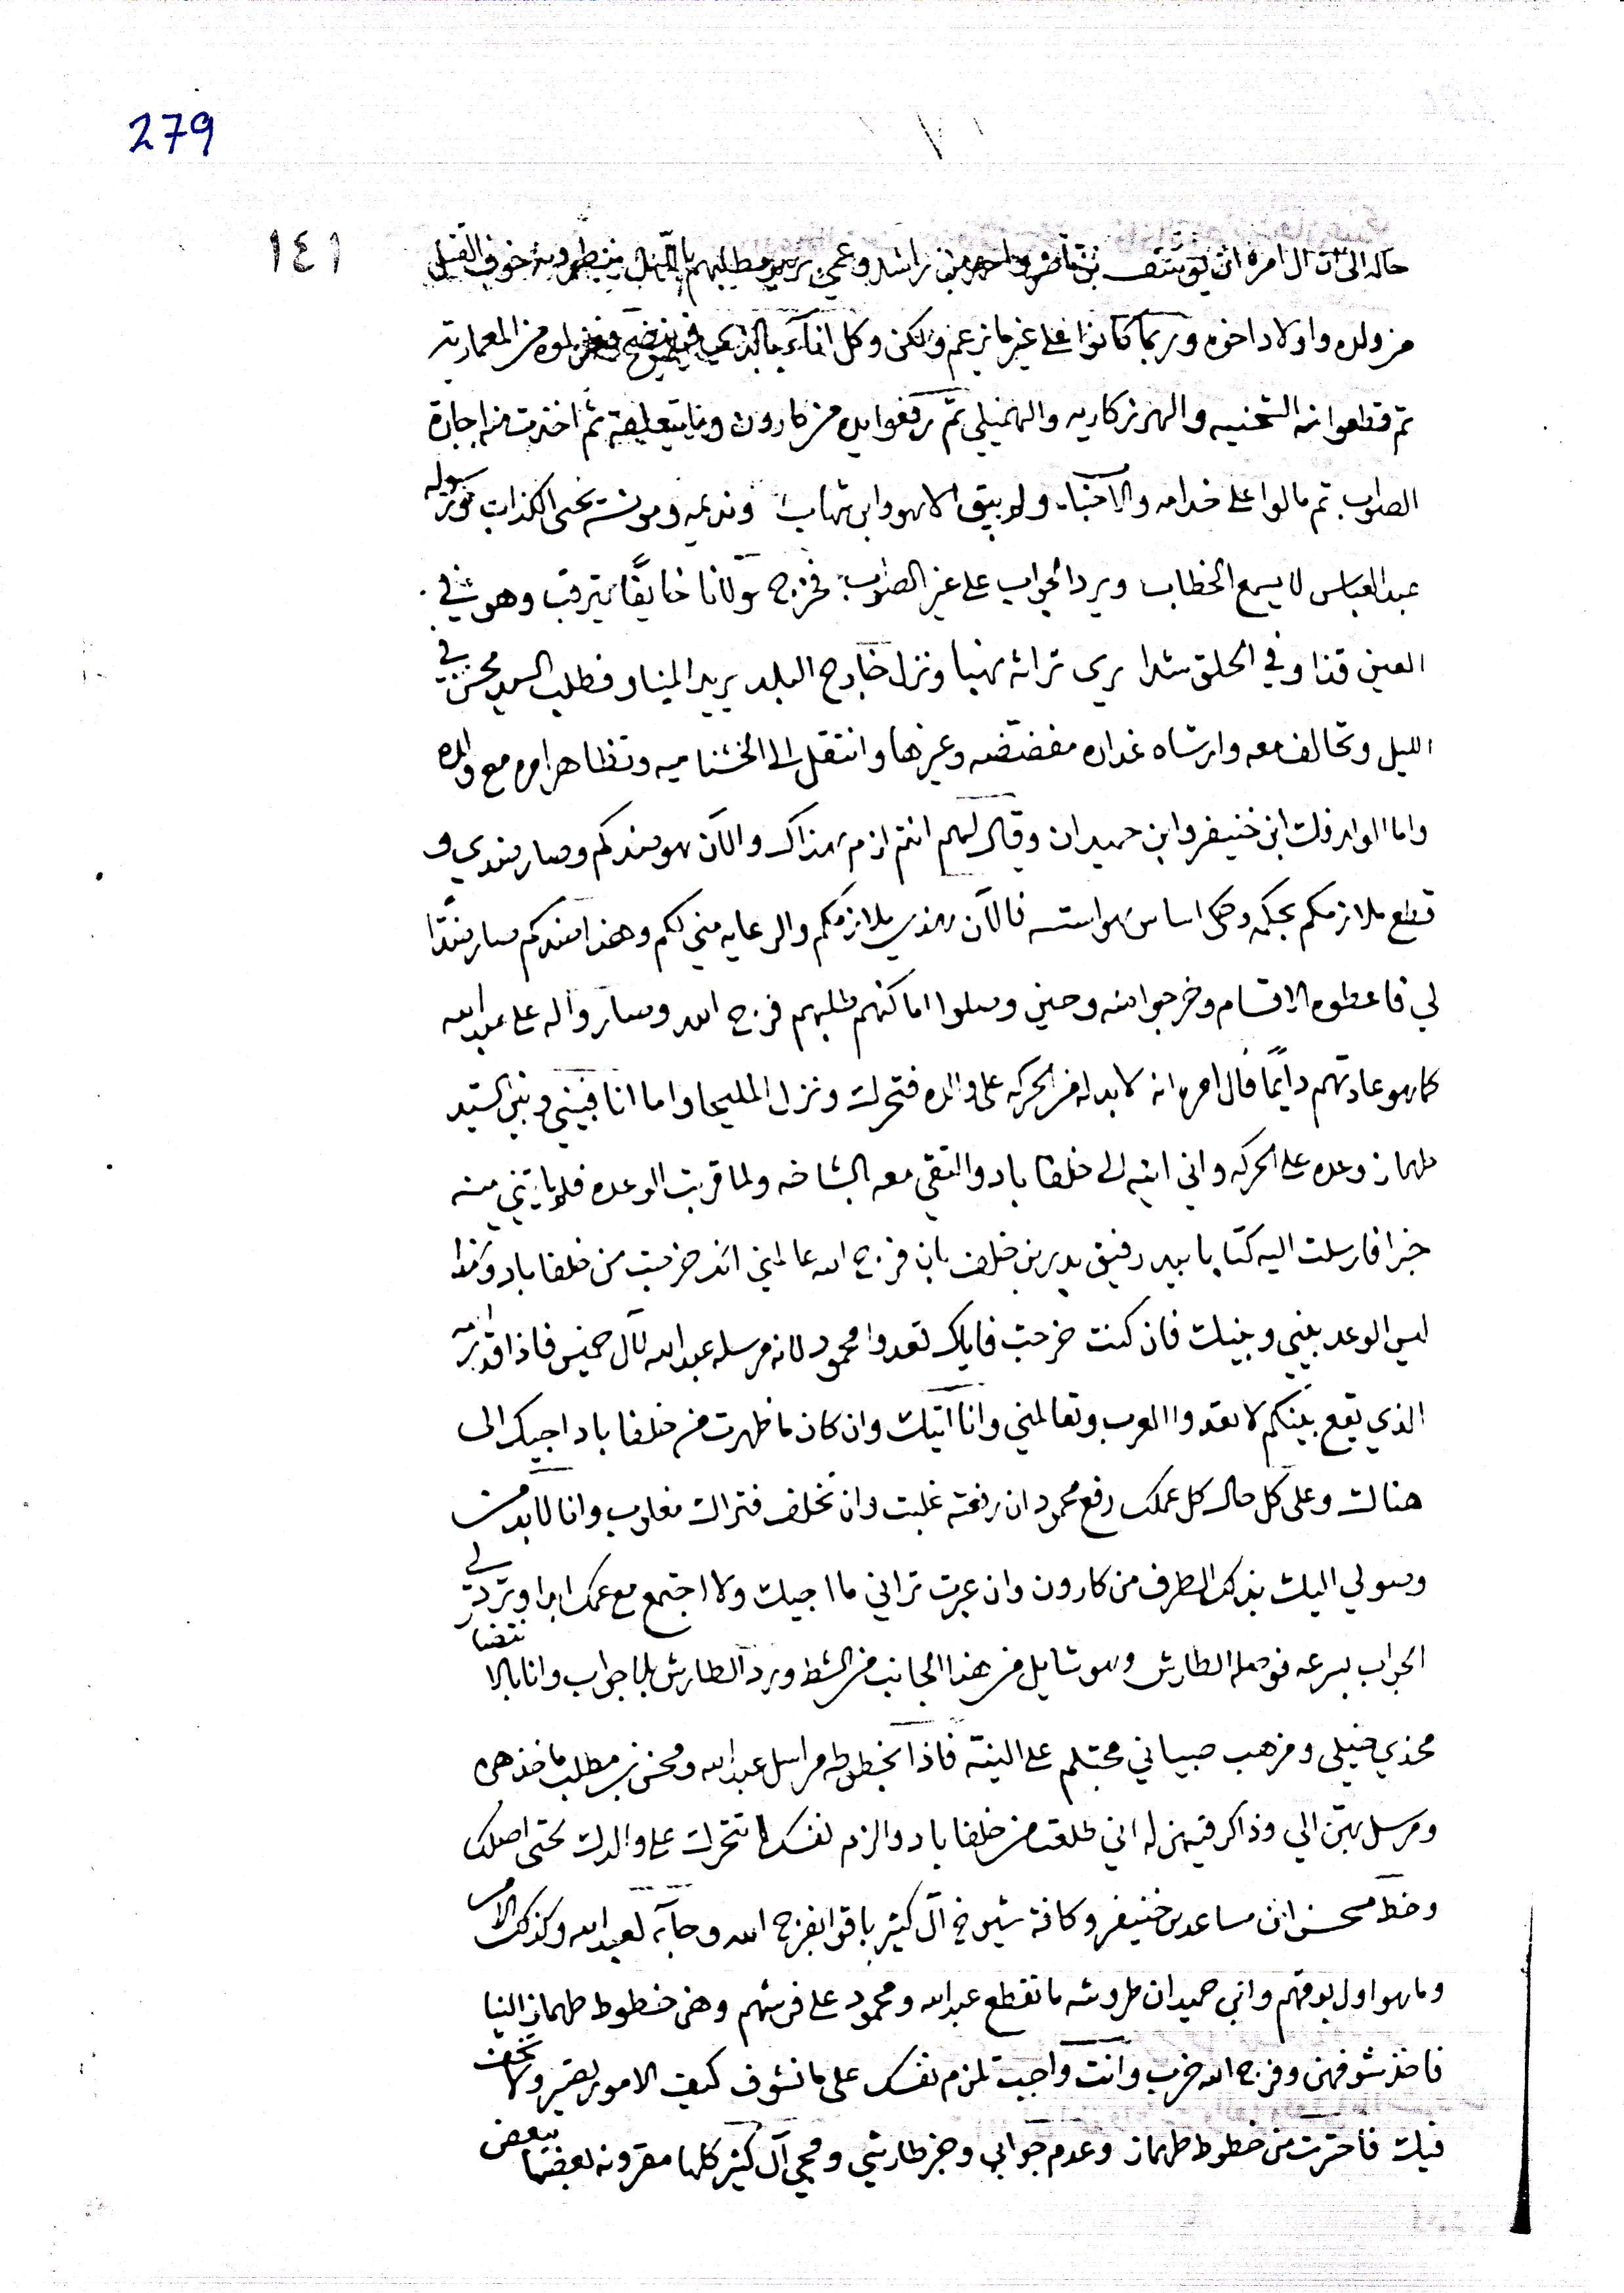 279
١٤١
حاله الى ان آل امره ان يوسف بن ناصر واحمد بن راشد وعمي يريد مطلبهم بالليل خوف القيل
من ولده واولاد اخوه وربما كانوا على غير ما يزعم ولكن وكل اناء بالذي فيه ينضح
ثم قطعوا منه الشحنيه والهرزكاريه والهميلي ثم رفعوا يده من كارون وما يتعلق به ثم اخذت منه اجارة
الصلوب ثم مالوا على خدامه والاجناب ولم يبق الا هو وابن شهاب ونديمه ومونسه يحيى الكذاب ورسوله
عبد العباس لا يسمع الخطاب ويرد الجواب على غير الصواب فخرج مولانا خائفًا يترقب وهو في
العين قذا وفي الحلق شدا يرى تراثه نهبا ونزل خارج البلد يريد الميناو فطلب السيد محسن في
الليل وتحالف معه وارشاه غداره مفضضه وغيرها وانتقل الى الخشناميه وتظاهر امره مع والده
واما الوالد فلت ابن خنيفر وابن حميدان وقال لهم انتم لزم بهذاك والآن هو سندكم وصار سندي و
قطع ملازمكم بحكمه وعلى اساس هو اسسه فالآن هذي ملازمكم والرعايه مني لكم وهذا سندكم صار سندًا
لي فاعطوه الاقسام وخرجوا منه وحين وصلوا اماكنهم طلبهم فرج الله وصاروا له على عبد الله
كما هو عادتهم دايمًا فآل امره انه لا بد له من الحركه على والده فتحرك ونزل المليحا واما انا فبيني وبين السيد
طهماز وعده على الحركه واني اتيه الى خلفاباد والتقي معه الشاخه ولما قربت الوعده فلم ياتني منه
خبر افارسلت اليه كتابا بيد رفيق بدير بن خلف بان فرج الله عالمني انك خرجت من خلفاباد وكذا
ليس الوعد بيني وبينك فان كنت خرجت فاياك تعدوا محمود لانه مرسله عبد الله لآل خميس فاذا
الذي يقع بينكم لا تعدوا العرب وتعالمني وانا اتيك وان كان ما ظهرت من خلفاباد اجيك الى
هناك وعلى كل حال كل عملك رفع محمود ان رفعته غلبت وان تخلف فتراك مغلوب وانا لا بد من
وصولي اليك بذلك الطرف من كارون وان عبرت تراني ما اجيك ولا اجتمع مع عمك ابدا وترد لي
الجواب بسرعه فوصله الطارش وهو شايل من هذا الجانب من الشط ورد الطارش بلا جواب وانا بالانتضار
محذي خيلي ومزهب صبياني مجتلم على النيه فاذا بخطوطه مراسل عبد الله ومحسن بن مطلب ماخذهن
ومرسل بهن الي وذاكر فيهن له اني طلعت من خلفاباد والزم نفسك لا تتحرك على والدك حتى اصلك
وخط محسن ان مساعد بن خنيفر وكافة شيوخ آل كثير باقوا بفرج الله وجآبه لعبد الله وكذلك الامر
وما هو اول بوقهم وابن حميدان طروشه ما تقطع عبد الله ومحمود على فرشهم وهن خطوط طهماز الينا
فاخذ شوفهن وفرج الله خرب وانت واجب تلزم نفسك على ما نشوف كيف الامور تصير
فيك فاحترت من خطوط طهماز وعدم جوابي وخبر طارشي ومجي آل كثير كلها مقرونه بعضها ببعض